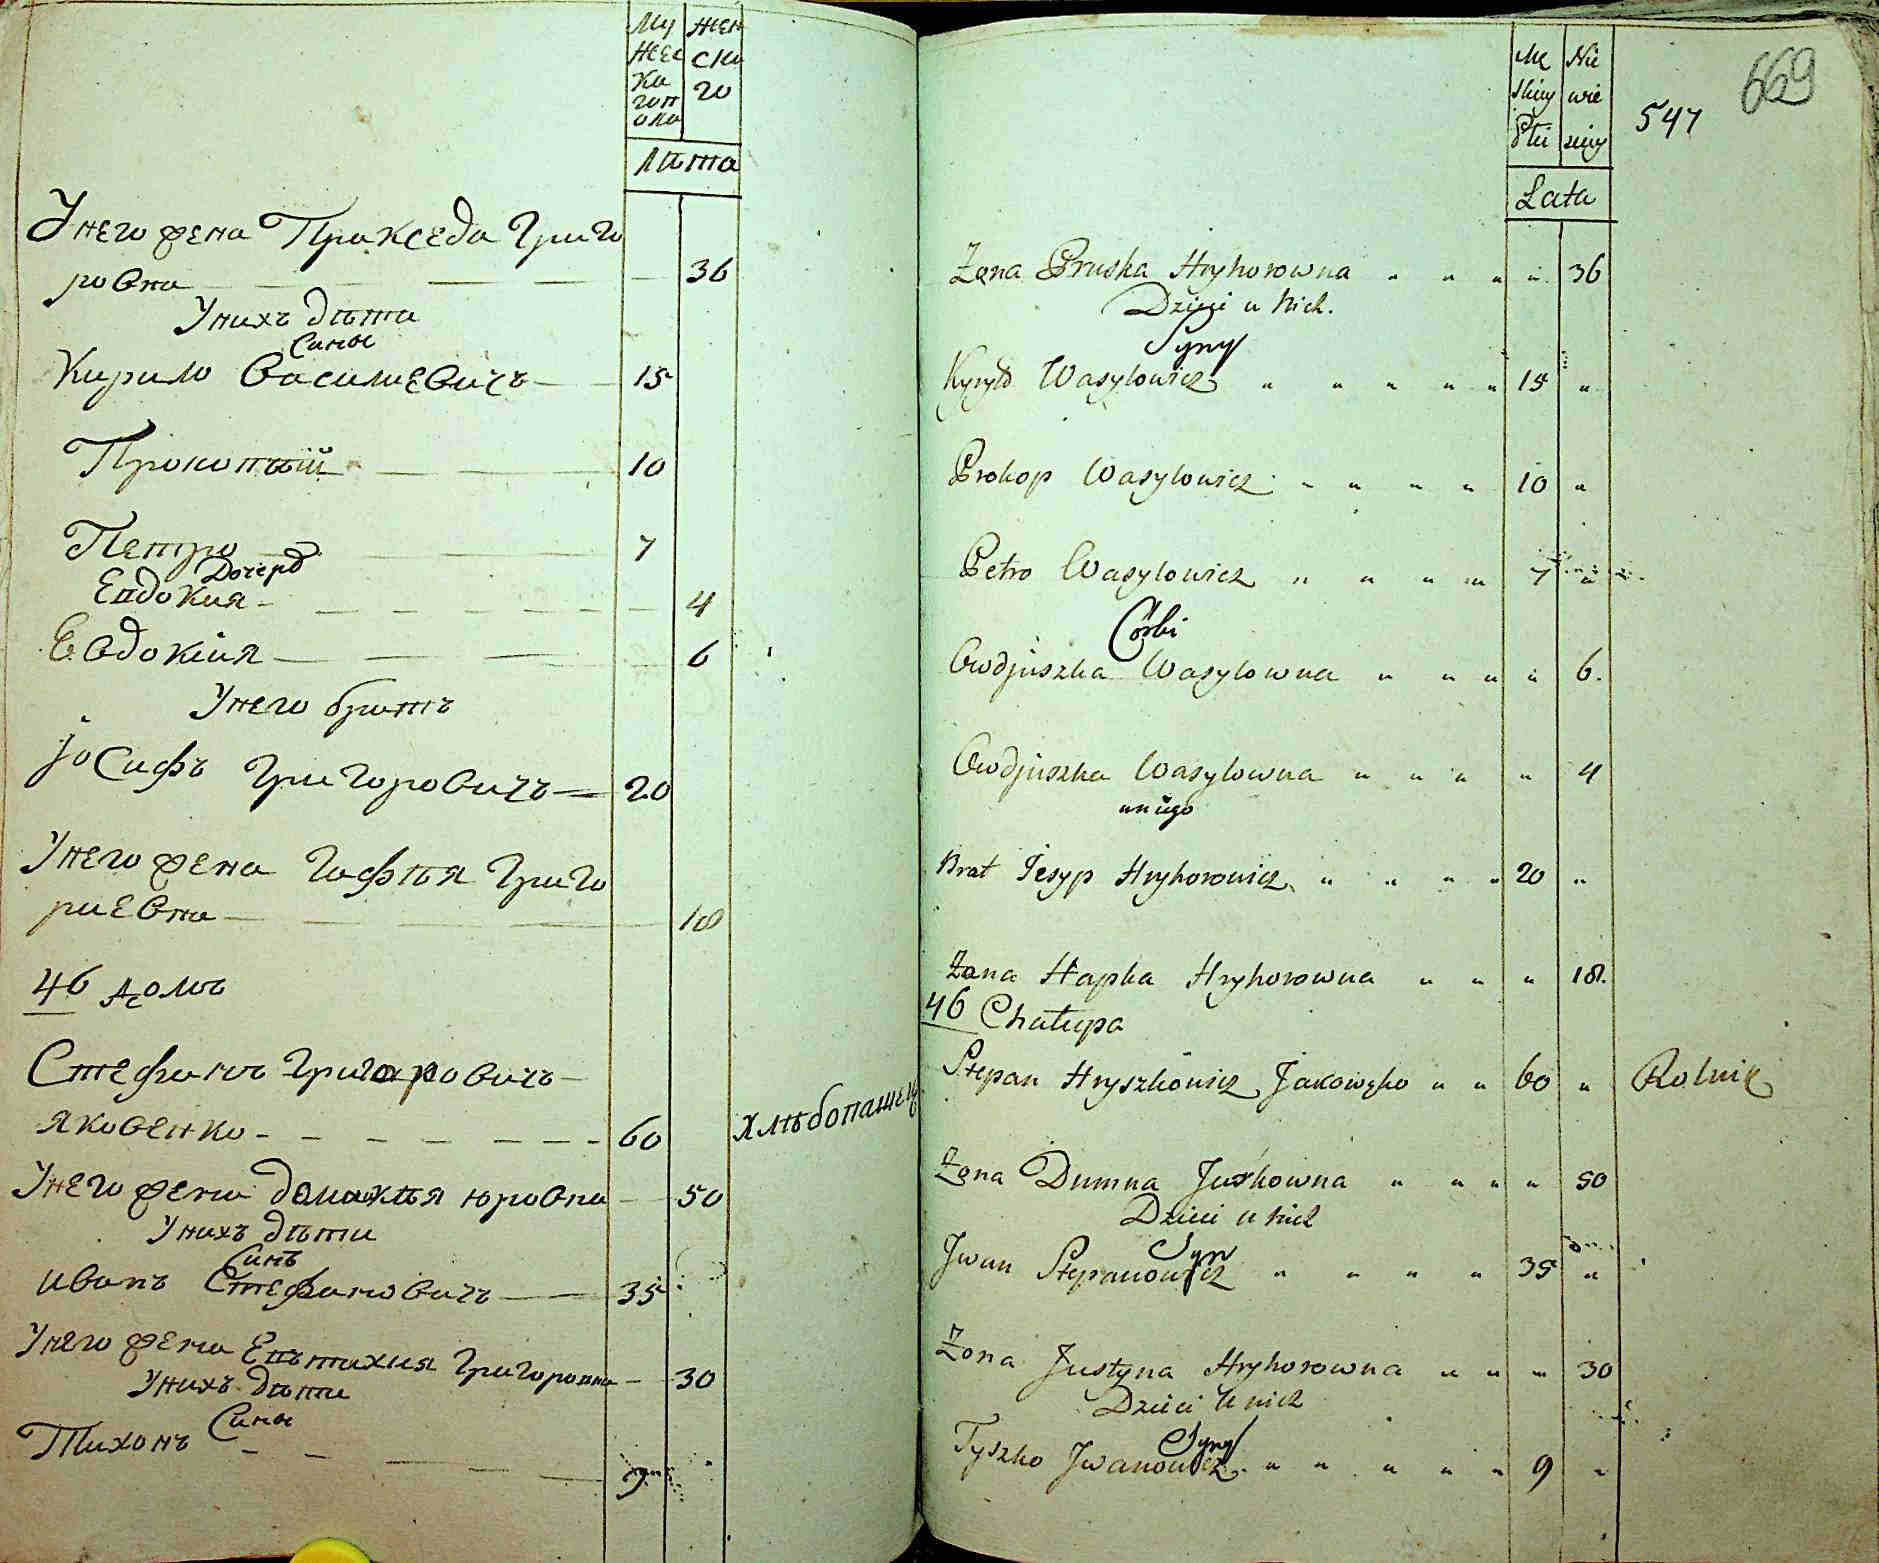 Му
жес
ка
гоп
ола
Жен
ска
го
Лѣта
У него жена Пракседа Григо
ровна 36
У нихъ дѣти
Сины
Кирило Василиевичъ 15
Прокопий 10
Петро 7
Дочерѣ
Евдокия 4
Евдокиія 6
У него братъ
Іосифъ Григоровичъ 20
У него жена Гафія Григо
риевна 18
46 домъ
Стефанъ Григоровичъ
Яковенко 60 хлѣбопашецъ
У него жена Домахия Юровна 50
У нихъ дѣти
Синъ
Иванъ Стефановичъ 35
У него жена Григоровна 30
У нихъ дѣти
Сины
Тихонъ 9
Mę
skiey
Płci
Nie
wie
sciey
Lata
547
669
Żona Pruska Hryhorowna " " " " 36
Dzieci u nich.
Syny
Kyryło Wasylowicz " " " " " 15 "
Prokop Wasylowicz " " " " 10 "
Petro Wasylowicz " " " " 7 "
Córki
Owdjuszka Wasylowna " " " " 6.
Owdjuszka Wasylowna " " " " 4
u niego
Brat Jesyp Hryhorowicz " " " " 20 "
Żona Hapka Hryhorowna " " " 18.
46 Chałupa
Stepan Hryszkowicz Jakowęko " " 60 " Rolnik
Żona Dumna Juśkowna " " " " 50
Dzieci u nich
Syn
Jwan Stepanowicz " " " " 35 "
Żona Justyna Hryhorowna " " " 30
Dzieci u nich
Syny
Tyszko Jwanowicz " " " " " 9 "